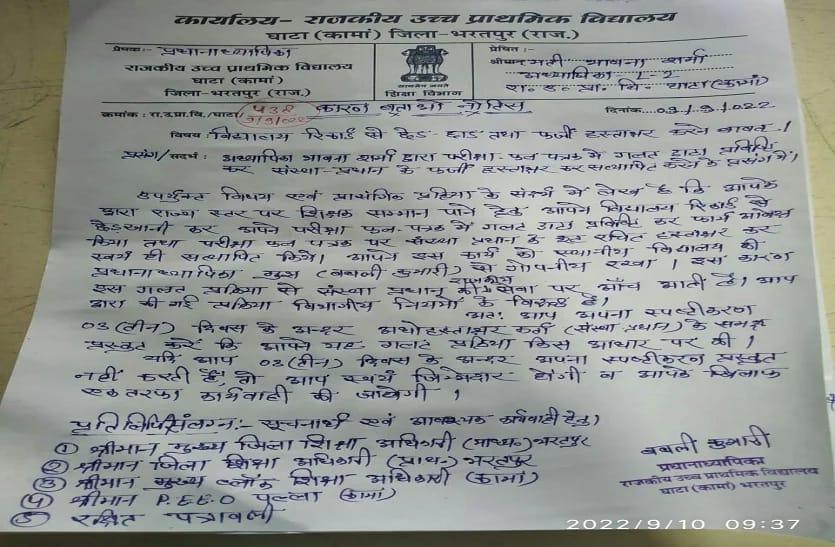 कार्यालय- राजकीय उच्च प्राथमिक विद्यालय
घाटा (कामां) जिला-भरतपुर (राज.)
प्रेषक:- प्रधानाध्यापिका
राजकीय उच्च प्राथमिक विद्यालय
घाटा (कामां)
जिला-भरतपुर (राज.)
शिक्षा विभाग
प्रेषित:-
श्रीमान् मती भावना शर्मा
अध्यापिका L-2
रा. उ. प्रा. वि. घाटा (कामां)
क्रमांक: रा.उ.प्रा.वि./घाटा/ कारण बताओ नोटिस दिनांक....09/9/022
विषय: विद्यालय रिकार्ड से छेड़ छाड़ तथा फर्जी हस्ताक्षर करने बाबत।
प्रसंग/सदर्भ: अध्यापिका भावना शर्मा द्वारा परीक्षा फल पत्रक में गलत डाटा प्रविष्टि
कर संस्था-प्रधान के फर्जी हस्ताक्षर कर सत्यापित करने के प्रसंग में।
उपर्युक्त विषय एवं प्रासंगिक प्रक्रिया के संदर्भ में लेख है कि आपके
द्वारा राज्य स्तर पर शिक्षक सम्मान पाने हेतु आपने विद्यालय रिकार्ड से
छेडखानी कर अपने परीक्षा फल-पत्रक में गलत डाटा प्रविष्टि कर फार्म
किया तथा परीक्षा फल पत्रक पर संस्था प्रधान के हस्ताक्षर कर
स्वयं ही सत्यापित किये। आपने इस कार्य को स्थानीय विद्यालय की
प्रधानाध्यापिका (बबली कुमारी) से गोपनीय रखा। इस कारण
इस गलत प्रक्रिया से संस्था प्रधान की राजकीय सेवा पर आँच आती है। आप
द्वारा की गई प्रक्रिया विभागीय नियमों के विरूद्ध है।
अतः आप अपना स्पष्टीकरण
03 (तीन) दिवस के अन्दर अधोहस्ताक्षर कर्ता (संस्था प्रधान) के समक्ष
प्रस्तुत करें कि आपने यह गलत प्रक्रिया किस आधार पर की।
यदि आप 03 (तीन) दिवस के अन्दर अपना स्पष्टीकरण प्रस्तुत
नहीं करती हैं, तो आप स्वयं जिम्मेदार होंगी व आपके खिलाफ
एक तरफा कार्यवाही की जायेगी।
प्रतिलिपि संलग्न:- सूचनार्थ एवं आवश्यक कार्यवाही हेतु।
① श्रीमान मुख्य जिला शिक्षा अधिकारी (माध्य०) भरतपुर
② श्रीमान जिला शिक्षा अधिकारी (प्राथ०) भरतपुर
③ श्रीमान मुख्य ब्लॉक शिक्षा अधिकारी (कामां)
④ श्रीमान P.E.E.O पल्ला (कामां)
⑤ रक्षित पत्रावली
बबली कुमारी
प्रधानाध्यापिका
राजकीय उच्च प्राथमिक विद्यालय
घाटा (कामां) भरतपुर
2022/9/10 09:37